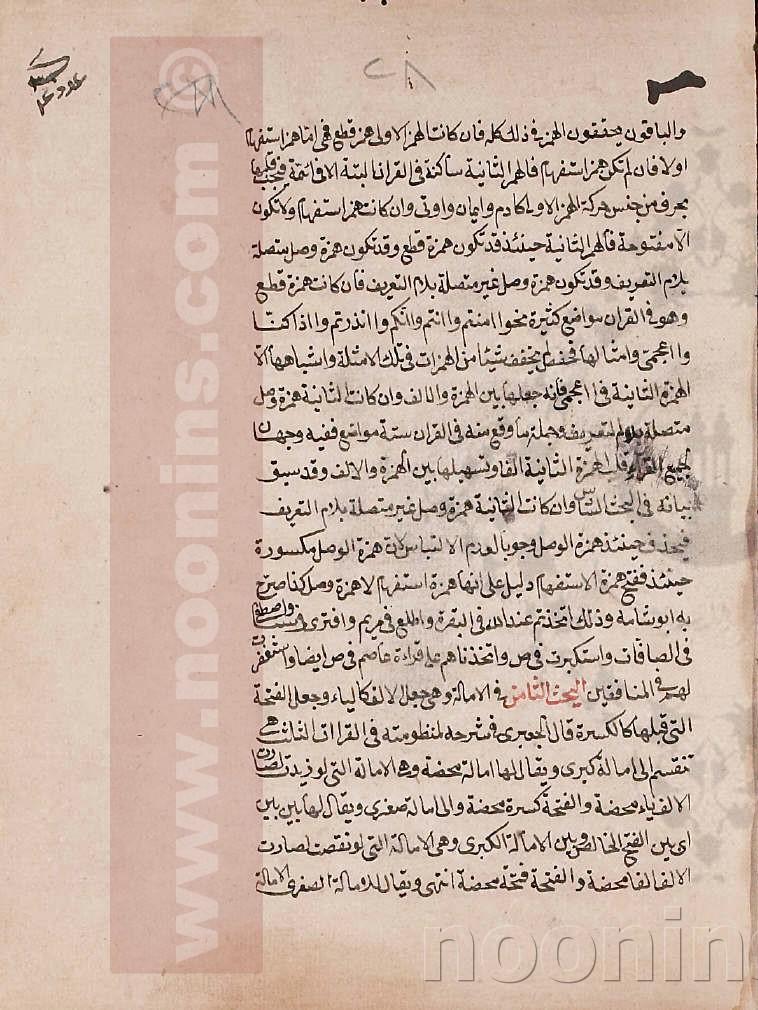 ٢٨
والباقون يحققون الهمز في ذلك كله فان كانت الهمز الاولى همز قطع فهى اما همز استفهام
اولا فان لم تكن همز استفهام فالهمز الثانية ساكنة في القران البتة الا في ائمة فيجب قلبها
بحرف من جنس حركة الهمز الاولى كادم وايمان واوتى وان كانت همز استفهام ولا تكون
الا مفتوحة فالهمز الثانية حينئذ قد تكون همزة قطع وقد تكون همزة وصل متصلة
بلام التعريف وقد تكون همزة وصل غير متصلة بلام التعريف فان كانت همزة قطع
وهو في القران مواضع كثيرة نحو اامنتم واانتم واانكم واانذرتم وااذا كنا
وااعجمى وامثالها فحفص لم يخفف شيئا من الهمزات في تلك الامثلة واشباهها الا
الهمزة الثانية في ااعجمى فانه جعلها بين الهمزة والالف وان كانت الثانية همزة وصل
متصلة بلام التعريف وجملة ما وقع منه في القران ستة مواضع ففيه وجهان
لجميع القراء قلب الهمزة الثانية الفا وتسهيلها بين الهمزة والالف وقد سبق
بيانه في البحث السادس وان كانت الثانية همزة وصل غير متصلة بلام التعريف
فيحذف حينئذ همزة الوصل وجوبا لعدم الالتباس لان همزة الوصل مكسورة
حينئذ ففتح همزة الاستفهام دليل على انها همزة استفهام لا همزة وصل كذا صرح
به ابو شامة وذلك اتخذتم عند الله في البقرة واطلع في مريم وافترى في سبا واصطفى
في الصافات واستكبرت في ص واتخذناهم على قراءة عاصم في ص ايضا واستغفرت
لهم في المنافقين البحث الثامن في الامالة وهى جعل الالف كالياء وجعل الفتحة
التى قبلها كالكسرة قال الجعبرى في شرحه لمنظومته في القراات الثلث هى
تنقسم الى امالة كبرى ويقال لها امالة محضة وهى الامالة التى لو زيدت لصارت
الالف ياء محضة والفتحة كسرة محضة والى امالة صغرى ويقال لها بين بين
اى بين الفتح الخالص وبين الامالة الكبرى وهى الامالة التى لو نقصت لصارت
الالف الفا محضة والفتحة فتحة محضة انتهى ويقال للامالة الصغرى الامالة
www.noonins.com
noonins